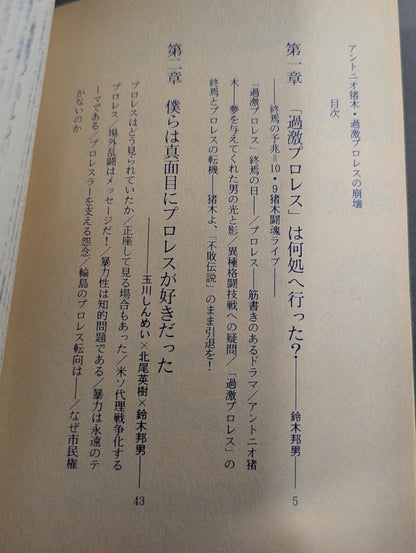 アントニオ猪木・過激プロレスの崩壊
目次
第一章　「過激プロレス」は何処へ行った？――鈴木邦男　5
――終焉の予兆＝10・9猪木闘魂ライブ――
「過激プロレス」終焉の日――／プロレス――筋書きのあるドラマ／アントニオ猪
木――夢を与えてくれた男の光と影／異種格闘技戦への疑問／「過激プロレス」の
終焉とプロレスの転機――猪木よ、「不敗伝説」のまま引退を！
第二章　僕らは真面目にプロレスが好きだった
――玉川しんめい×北尾英樹×鈴木邦男――43
プロレスはどう見られていたか／正座して見る場合もあった／米ソ代理戦争化する
プロレス／場外乱闘はメッセージだ！／暴力性は知的問題である／暴力は永遠のテ
ーマである／プロレスラーを支える怨念／輪島のプロレス転向は――／なぜ市民権
がないのか